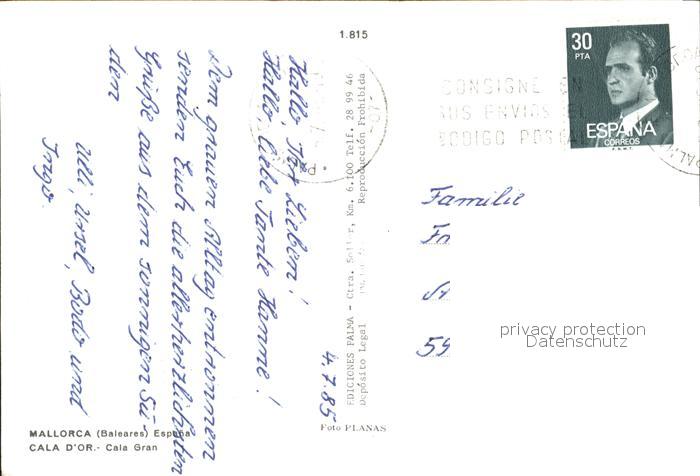 1.815
30
PTA
ESPAÑA
CORREOS
F.N.M.T.
CONSIGNE EN
SUS ENVIOS EL
CODIGO POSTAL
4.7.85
Hallo, Ihr Lieben!
Hallo, liebe Tante Hanne!
Dem grauen Alltag entronnen
senden Euch die allerherzlichsten
Grüße aus dem sonnigen Sü-
den
Ulli, Ursel, Bodo und
Ingo.
EDICIONES PALMA - Ctra. Sóller, Km. 6.100 Telf. 28 99 46
Depósito Legal
Reproducción Prohibida
Familie
59
privacy protection
Datenschutz
MALLORCA (Baleares) España
CALA D'OR.- Cala Gran
Foto PLANAS